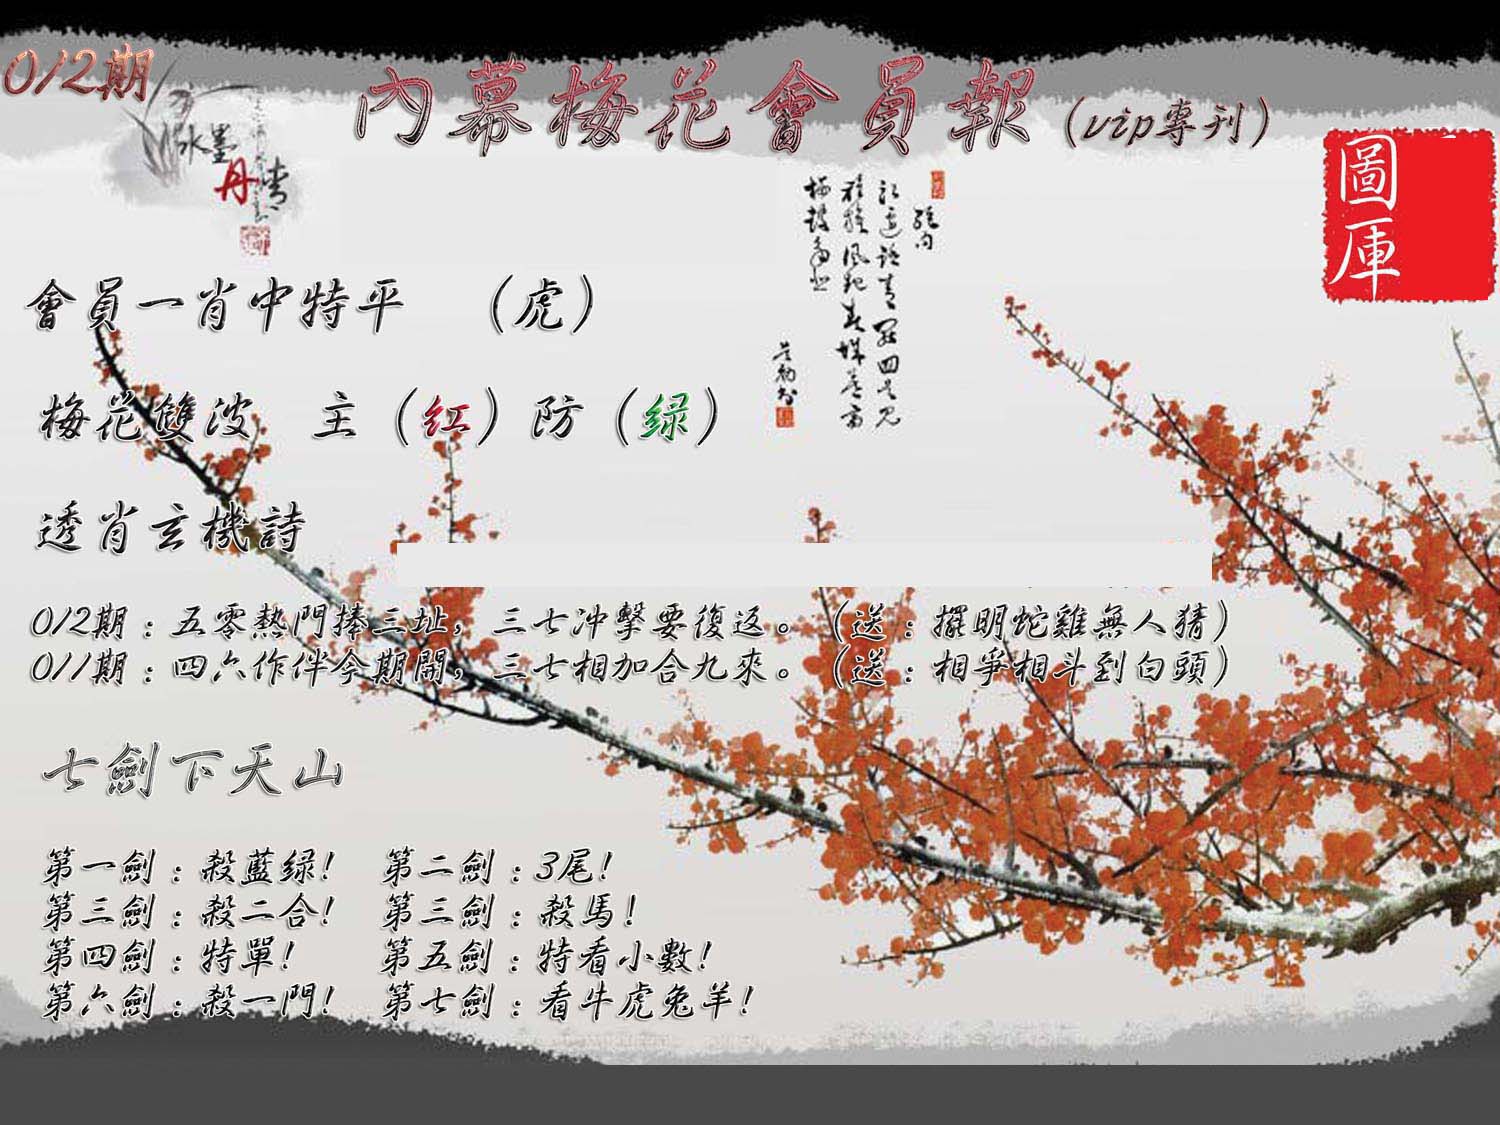 012期
內幕梅花會員報（vip專刊）
水墨
丹青
圖庫
會員一肖中特平　（虎）
梅花雙波　主（红）防（绿）
透肖玄機詩
012期：五零熱門捧三址，三七冲擊要復返。（送：擺明蛇雞無人猜）
011期：四六作伴今期開，三七相加合九來。（送：相爭相斗到白頭）
七劍下天山
第一劍：殺藍绿!　第二劍：3尾!
第三劍：殺二合!　第三劍：殺馬!
第四劍：特單!　第五劍：特看小數!
第六劍：殺一門!　第七劍：看牛虎兔羊!